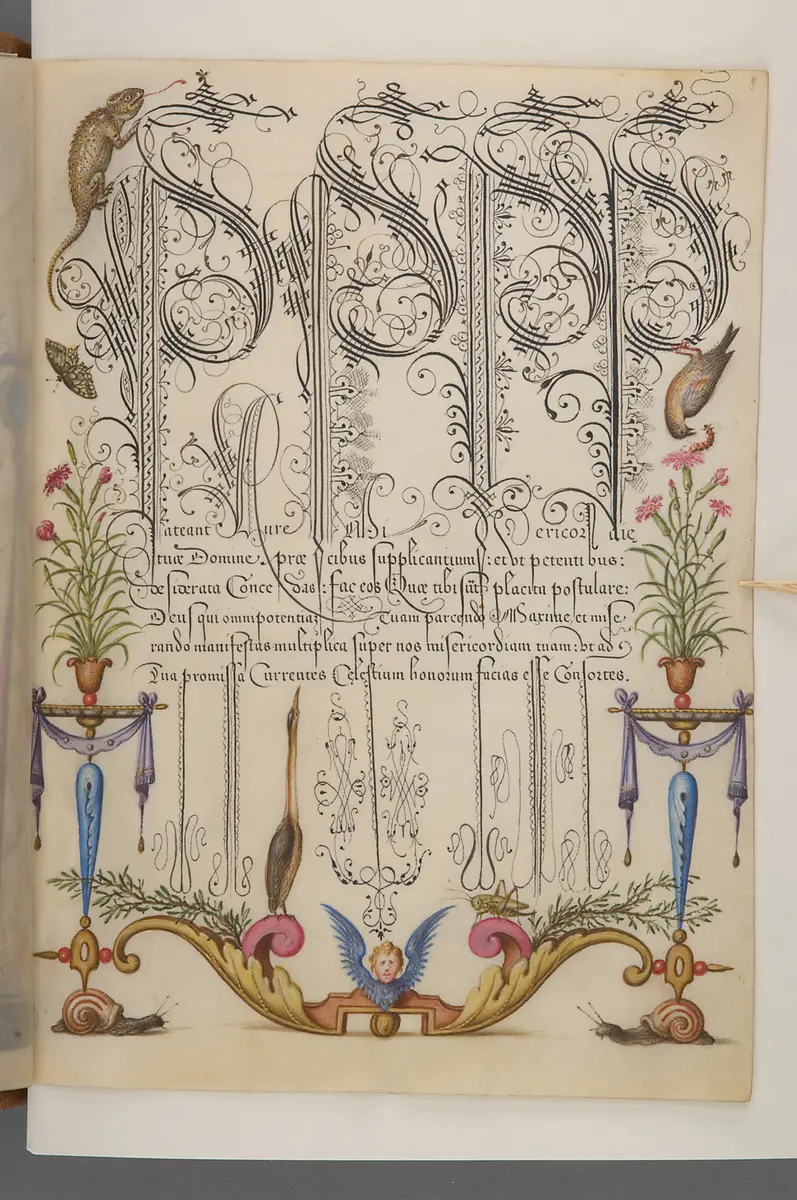 Pateant Aures Misericordie
tuæ Domine, præcibus supplicantium: et vt petentibus:
desiderata Concedas: fac eos Quæ tibi sūt placita postulare:
Deus qui omnipotentiam Tuam parcendo Maxime, et mise
rando manifestas multiplica super nos misericordiam tuam: vt ad
Tua promissa Currentes Celestium bonorum facias esse Consortes.